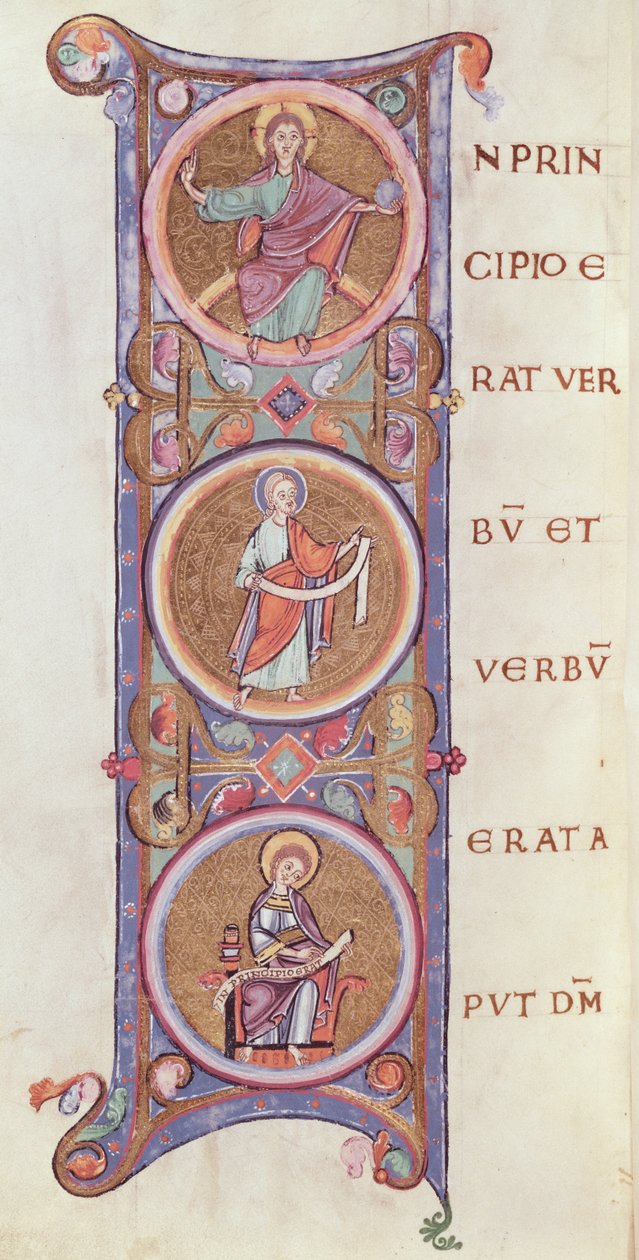 N PRIN
CIPIO E
RAT VER
BV̄ ET
VERBV̄
ERAT A
PVT DM̄
IN PRINCIPIO ERAT